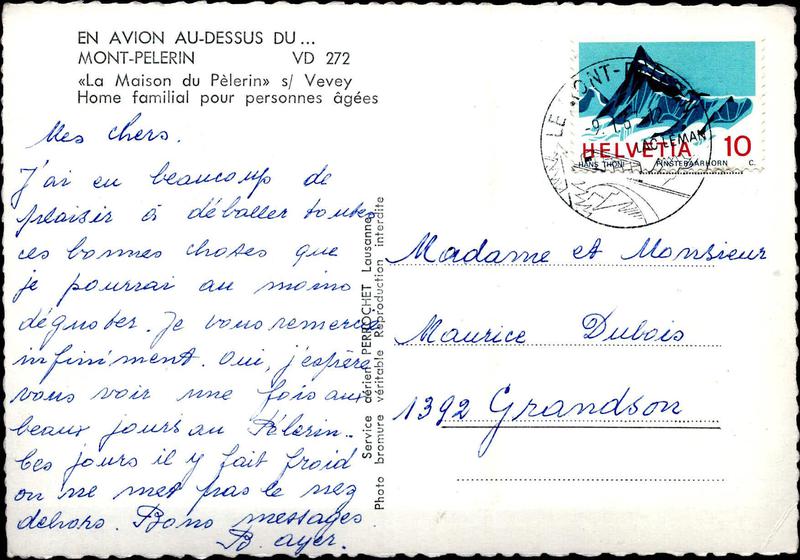 EN AVION AU-DESSUS DU...
MONT-PELERIN VD 272
«La Maison du Pèlerin» s/ Vevey
Home familial pour personnes âgées
Mes chers.
J'ai eu beaucoup de
plaisir à déballer toutes
ces bonnes choses que
je pourrai au moins
déguster. Je vous remercie
infiniment. Oui, j'espère
vous voir une fois aux
beaux jours au Pèlerin.
Ces jours il y fait froid
on ne met pas le nez
dehors. Bons messages
B. ayer.
Service aérien PERROCHET Lausanne
Photo bromure véritable Reproduction interdite
LE MONT-PÈLERIN
LAC LÉMAN
HELVETIA 10
HANS THÖNI FINSTERAARHORN C.
Madame et Monsieur
Maurice Dubois
1392 Grandson